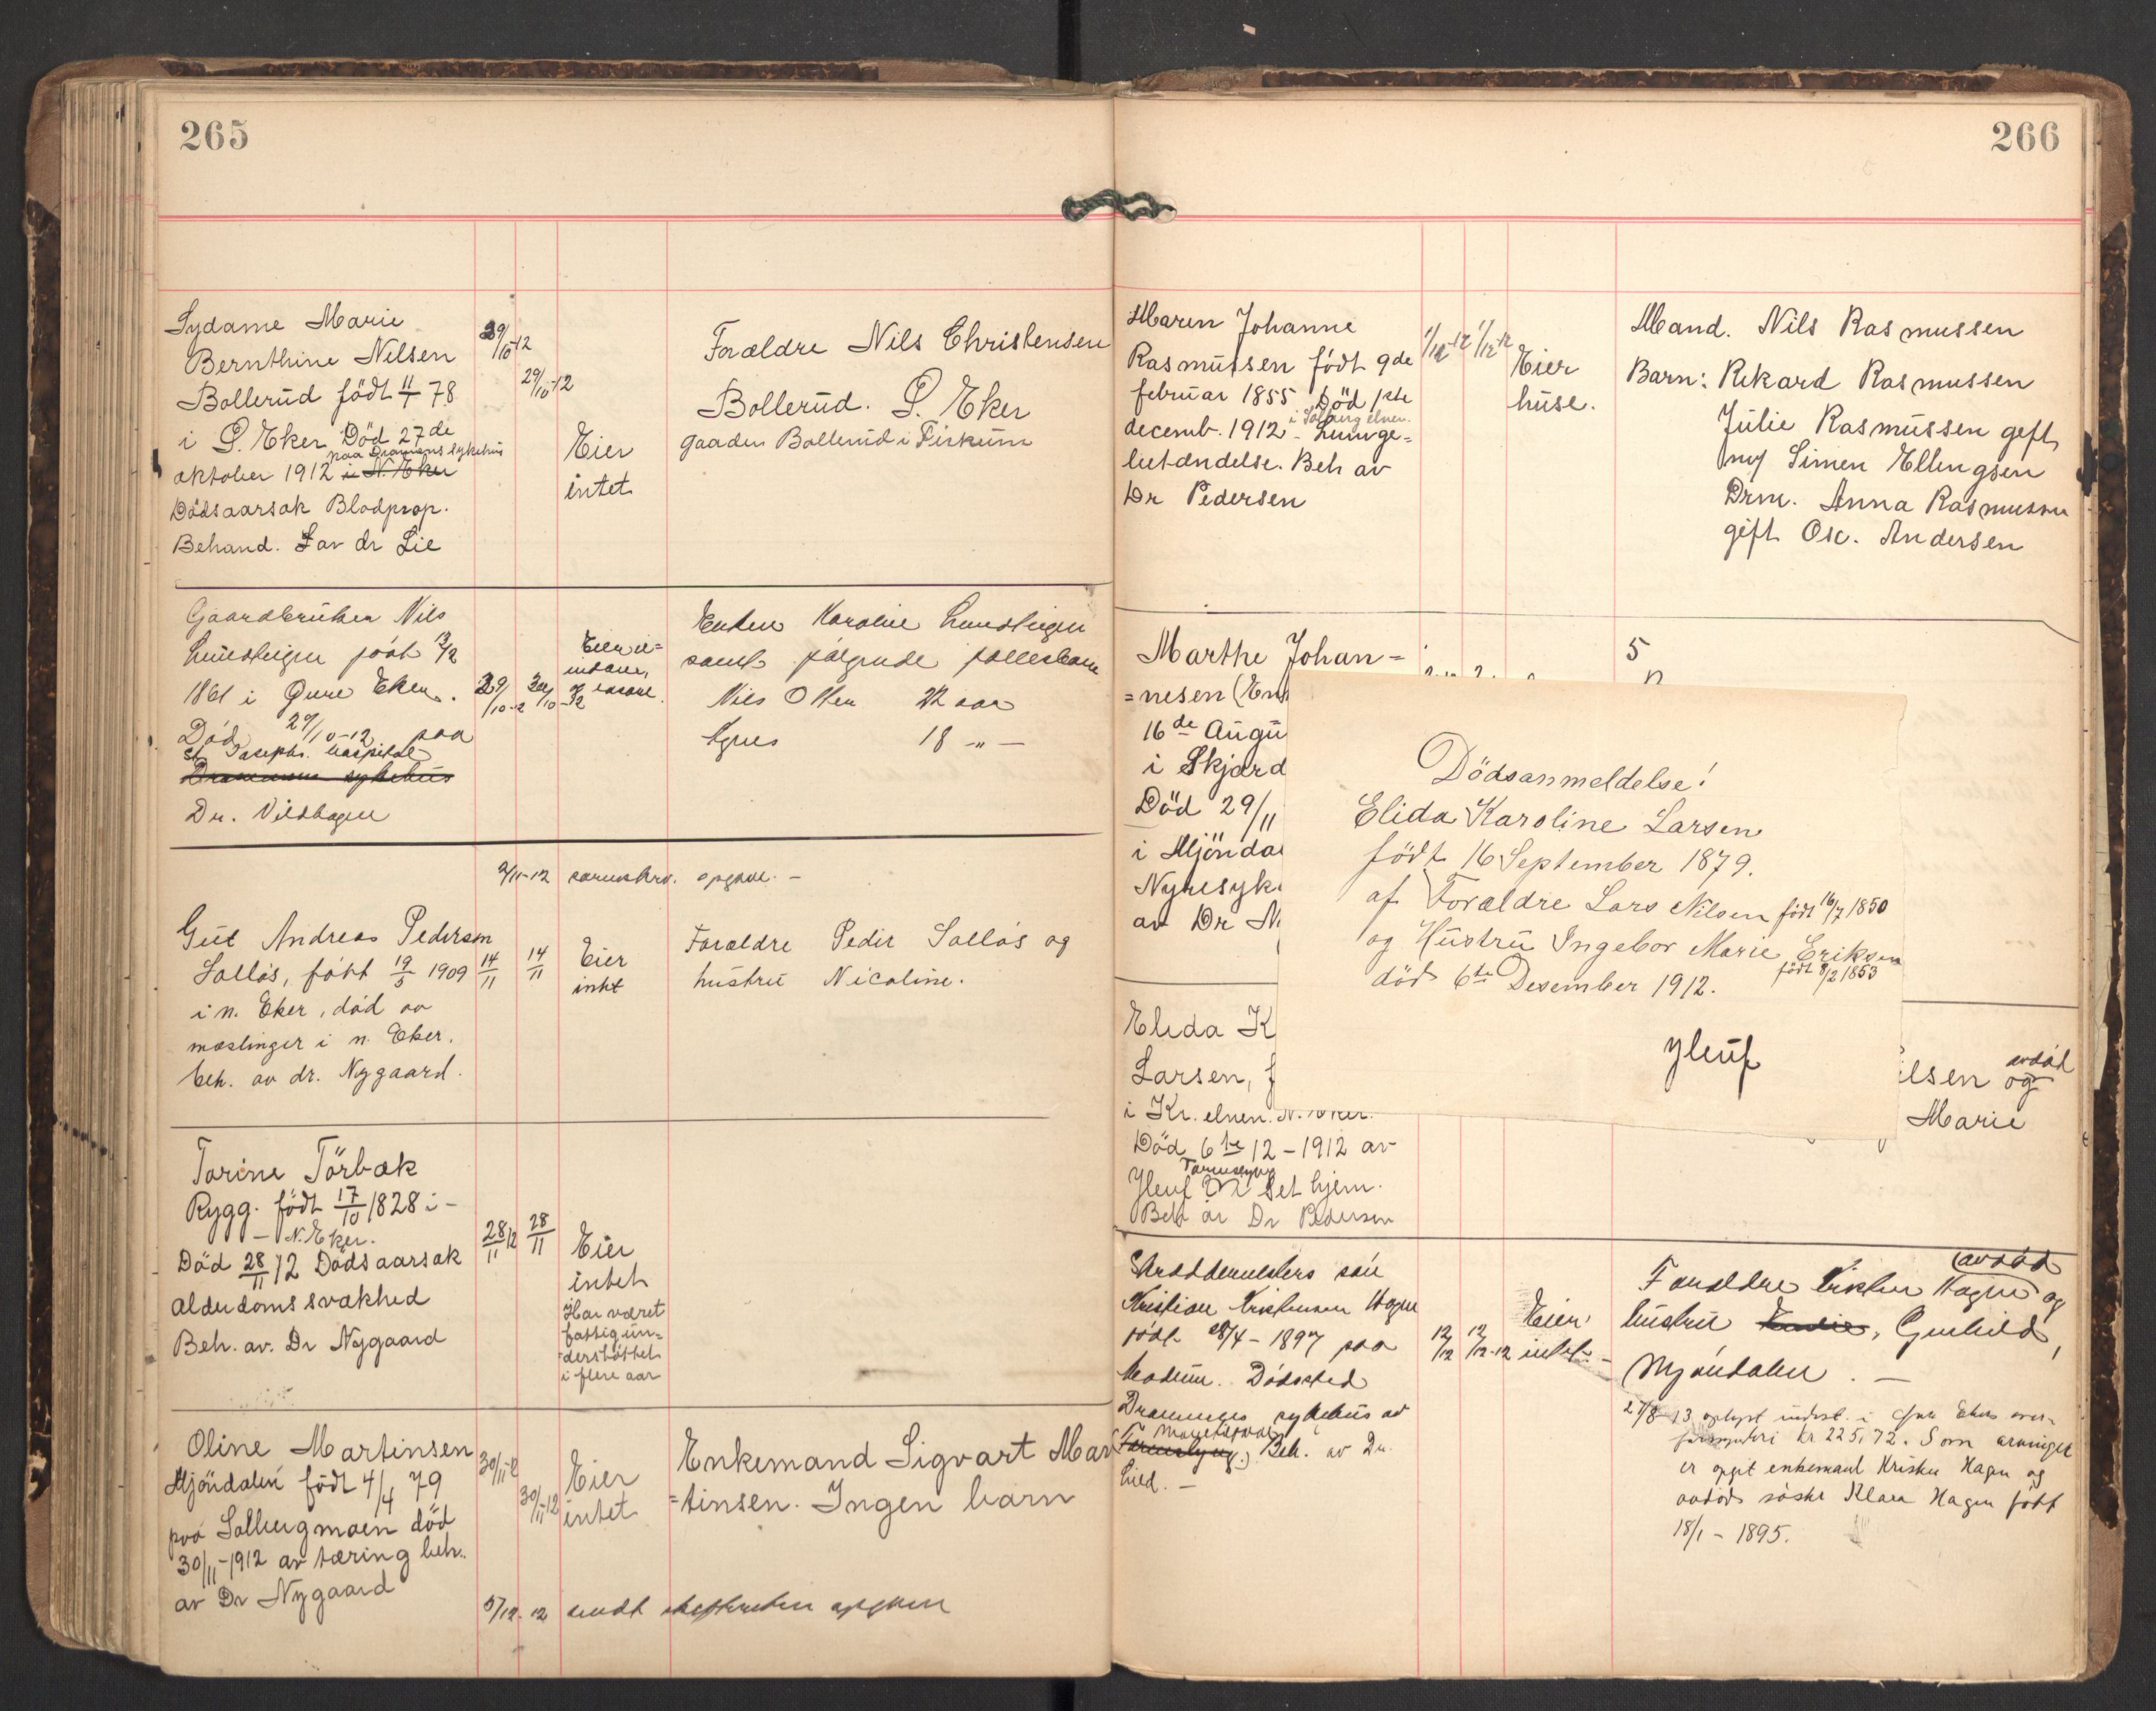 265
Sydame Marie
Bernthine Nilsen
Bollerud födt 11/1 78
i S. Eker Död 27de
paa Dramens sykehus
oktober 1912 i N. Eker
Dödsaarsak Blodprop.
Behand. av dr Lie
29/10-12
29/10-12
Eier
intet
Forældre Nils Christensen
Bollerud. S. Eker
gaarden Bollerud i Fiskum
Gaardbruker Nils
Lundteigen född 13/2
1861 i Øvre Eker.
Död 29/10-12 paa
St. Josephs. hospital
Drammens sykehus
Dr. Vildhagen
29/10-12
30/10-12
Enken Karoline Lundteigen
samt følgende fællesbarn
Nils Otten 22 aar
Agnes 18 -"-
2/11-12 opgave. -
Gut Andreas Pedersen
Solløs, født 19/5 1909
i n. Eker, död av
mæslinger i n. Eker.
beh. av dr. Nygaard.
14/11
14/11
Eier
intet
Forældre Peder Solløs og
hustru Nicoline.
Torine Törbæk
Rygg. födt 17/10 1828 i -
- N. Eker.
Död 28/11 12 Dödsaarsak
alderdomssvækhed
Beh. av. Dr Nygaard
28/11 12
28/11
Eier
intet
Har været
fattigun=
=derstöttet
i flere aar
Oline Martinsen
Mjöndalen födt 4/4 79
paa Solbergmoen död
30/11-1912 av tæring beh.
av Dr Nygaard
30/11-12
30/11-12
Eier
intet
Enkemand Sigvart Mar
=tinsen. Ingen barn
5/12-12 sendt skifteretten opgaven
266
Maren Johanne
Rasmussen födt 9de
februar 1855 Död 1ste
i Solberg elven.
decemb. 1912 - Lunge=
betændelse. Beh av
Dr Pedersen
1/12-12
1/12-12
Eier
huse.
Mand. Nils Rasmussen
Barn: Rikard Rasmussen
Julie Rasmussen gift
m/ Simen Ellingsen
Drm. Anna Rasmussen
gift Osc. Andersen
Marthe Johan=
=nesen (En
16de Augu
i Skjærd
Död 29/11
i Mjönda
Nyresyk
av Dr N
5
Dödsanmeldelse!
Elida Karoline Larsen
födt 16 September 1879.
af Forældre Lars Nilsen födt 16/7 1850
og Hustru Ingebor Marie Eriksen
födt 8/2 1853
död 6te Desember 1912.
Yleuf
Elida K
Larsen, f
i Kr. elven. N. Eker.
Död 6te 12-1912 av
Tarmslyng
Yleuf Set hjem.
Beh av Dr Pedersen
ilsen og
avdöd
Marie
Skræddermesters sön
Kristian Kristensen Hagen
född 28/4-1897 paa
Modum. Dödssted
Drammens sykehus av
Mavetarm
Tarmslyng. Beh. av Dr.
12/12
12/12-12
Eier
intet -
avdöd
Forældre Kristen Hagen og
hustru Gunhild,
Mjöndalen. -
27/8-13 oplyst indest. i Øvre Ekers over-
formynderi kr 225,72. Som arvinger
er opgit enkemand Kristen Hagen og
avdöds söster Klara Hagen född
18/1-1895.